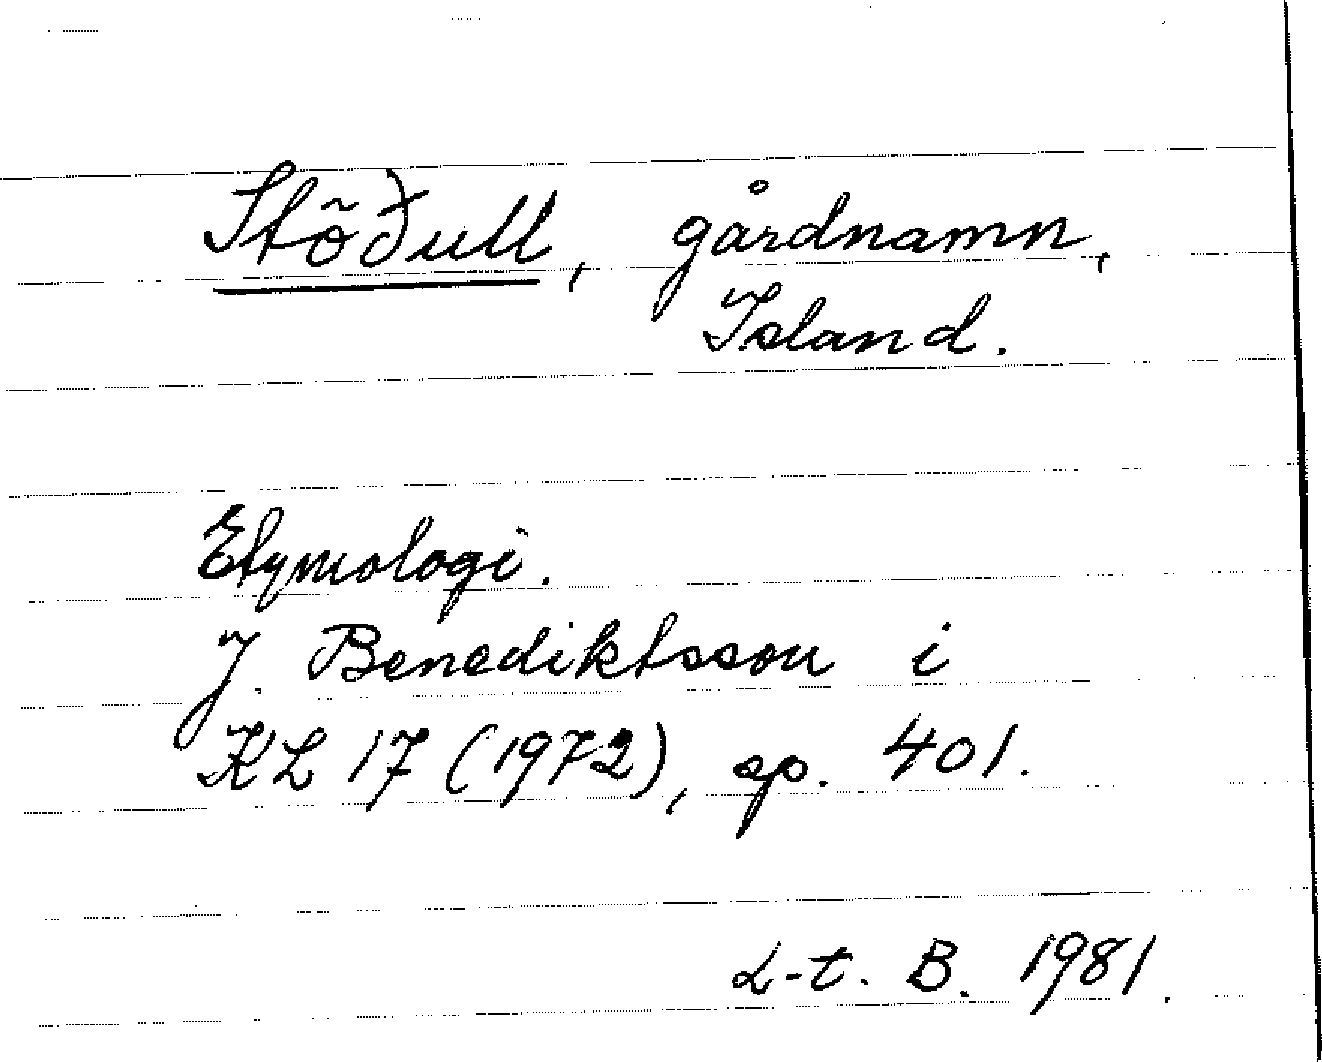 Stõðull, gårdnamn,
Island.
Etymologi.
J. Benediktsson i
KL 17 (1972), sp. 401.
L-t. B. 1981.